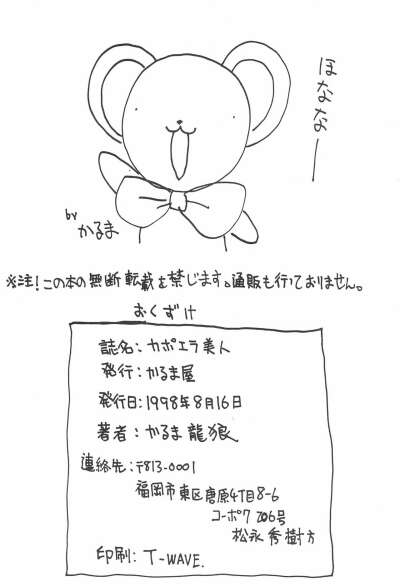 ほななー
by
かるま
※注!この本の無断転載を禁じます。通販も行っておりません。
おくずけ
誌名:カポエラ美人
発行:かるま屋
発行日:1998年8月16日
著者:かるま龍狼
連絡先:〒813-0001
福岡市東区唐原4丁目8-6
コーポワ206号
松永秀樹方
印刷:T-WAVE.